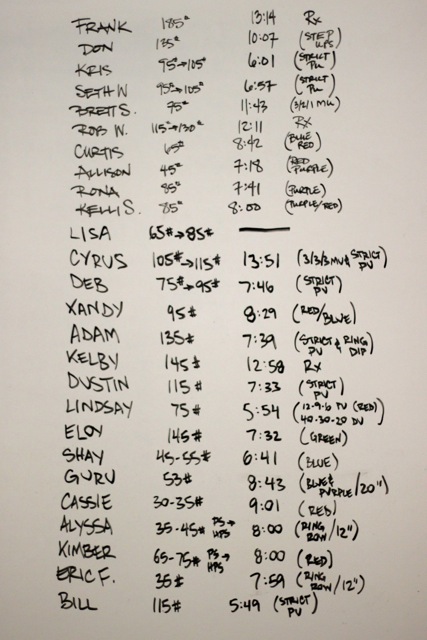 FRANK 185# 13:14 Rx
DON 135# 10:07 (STEP UPS)
KRIS 95#→105# 6:01 (STRICT PU)
SETH W 95#→105# 6:57 (STRICT PU)
BRETT S. 75# 11:43 (3/2/1 MU)
ROB W. 115#→130# 12:11 Rx
CURTIS 65# 8:42 (BLUE RED)
ALLISON 45# 7:18 (RED PURPLE)
RONA 85# 7:41 (PURPLE)
KELLI S. 85# 8:00 (PURPLE/RED)
LISA 65#→85# —
CYRUS 105#→115# 13:51 (3/3/3 MU & STRICT PU)
DEB 75#→95# 7:46 (STRICT PU)
XANDY 95# 8:29 (RED/BLUE)
ADAM 135# 7:39 (STRICT PU & RING DIP)
KELBY 145# 12:58 Rx
DUSTIN 115# 7:33 (STRICT PU)
LINDSAY 75# 5:54 (12-9-6 PU (RED) 40-30-20 DU)
ELOY 145# 7:32 (GREEN)
SHAY 45-55# 6:41 (BLUE)
GURU 53# 8:43 (BLUE & PURPLE/20")
CASSIE 30-35# 9:01 (RED)
ALYSSA 35-45# PS→HPS 8:00 (RING ROW/12")
KIMBER 65-75# PS→HPS 8:00 (RED)
ERIC F. 35# 7:59 (RING ROW/12")
BILL 115# 5:49 (STRICT PU)